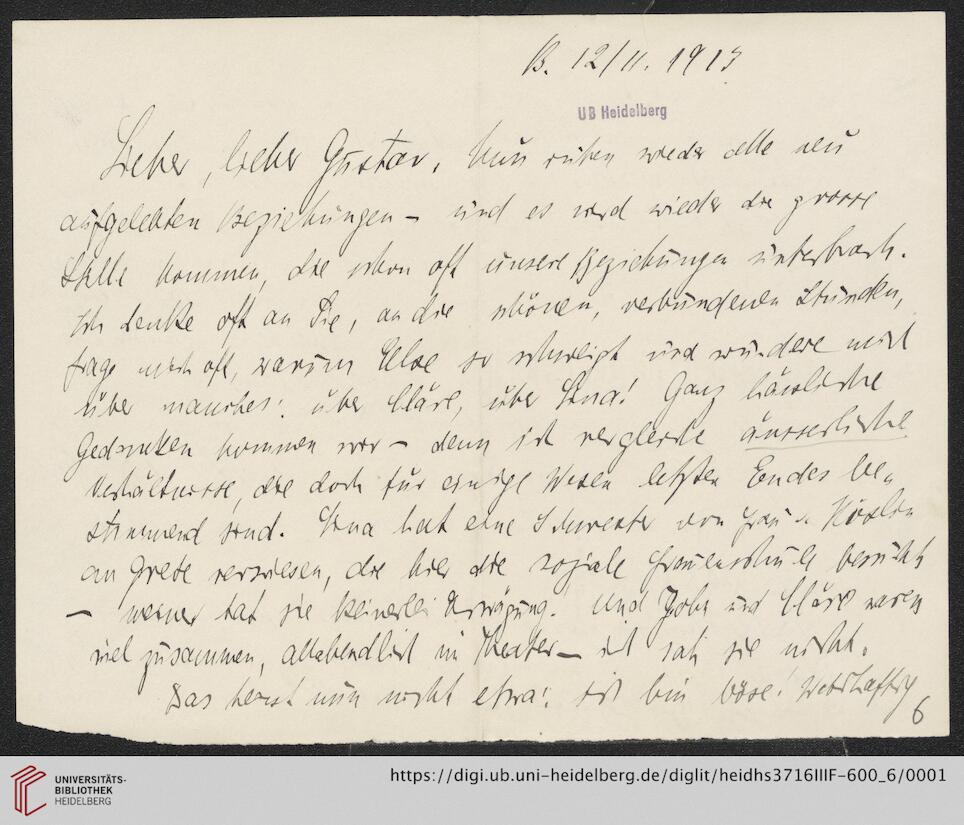 B. 12/11. 1913
UB Heidelberg
Lieber, lieber Gustav, Nun ruhen wieder alle neu
aufgelebten Beziehungen – und es wird wieder die grosse
Stille kommen, die schon oft unsere Beziehungen unterbrach.
Ich denke oft an Sie, an die schönen, verbundenen Stunden,
frage mich oft, warum Else so schweigt und wundere mich
über manches: über Cläre, über Lina! Ganz hässliche
Gedanken kommen mir – denn ich vergleiche äusserliche
Verhältnisse, die doch für einige Wesen letzten Endes be-
stimmend sind. Lina hat eine Schwester von Frau
an Grete verwiesen, die hier die soziale Frauenschule besucht
– meiner tat sie keinerlei Erwägung. Und John und Cläre waren
viel zusammen, allabendlich im Theater – ich sah sie nicht.
Das heisst nun nicht etwa: ich bin böse! Wahrhaftig
6
UNIVERSITÄTS-
BIBLIOTHEK
HEIDELBERG
https://digi.ub.uni-heidelberg.de/diglit/heidhs3716IIIF-600_6/0001